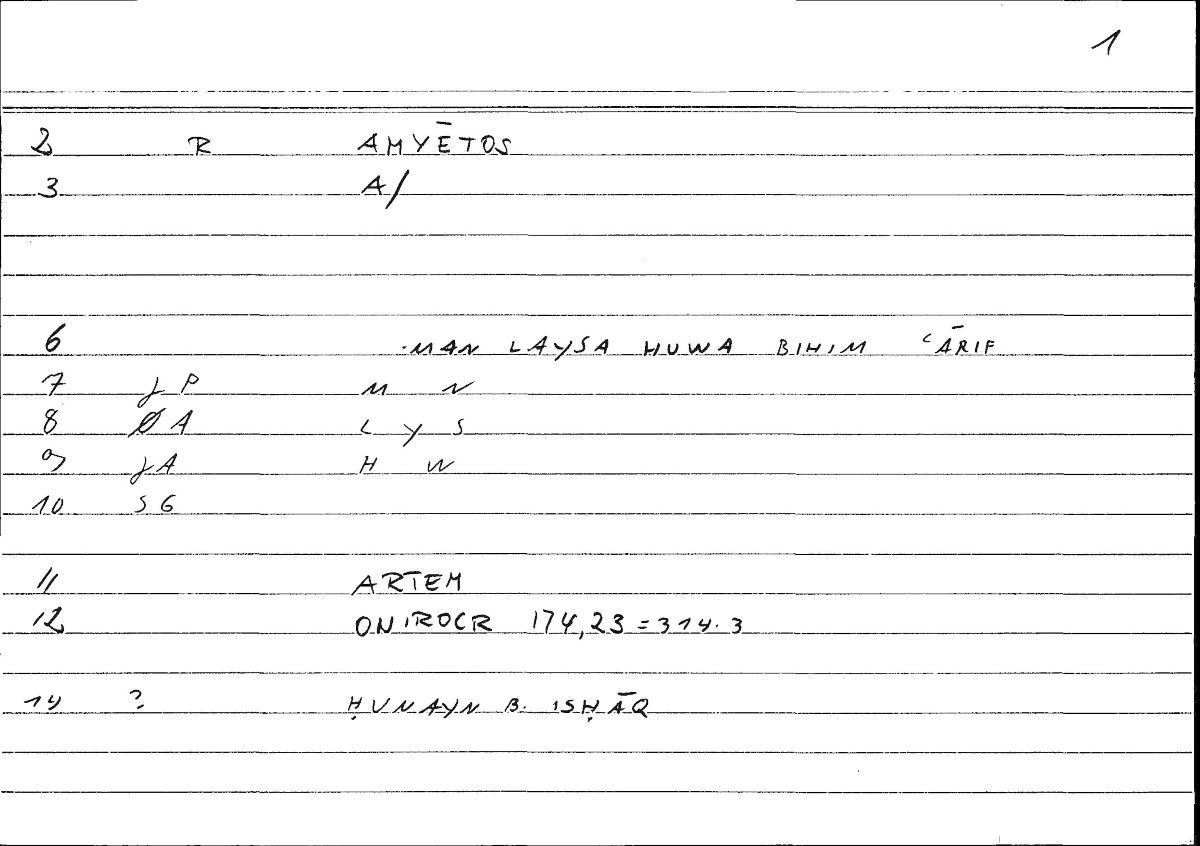 1
2 R AMYĒTOS
3 A/
6 MAN LAYSA HUWA BIHIM ʿĀRIF
7 JP M N
8 ØA L Y S
9 JA H W
10 SG
11 ARTEM
12 ONIROCR 174,23=314.3
14 ? ḤUNAYN B. ISḤĀQ